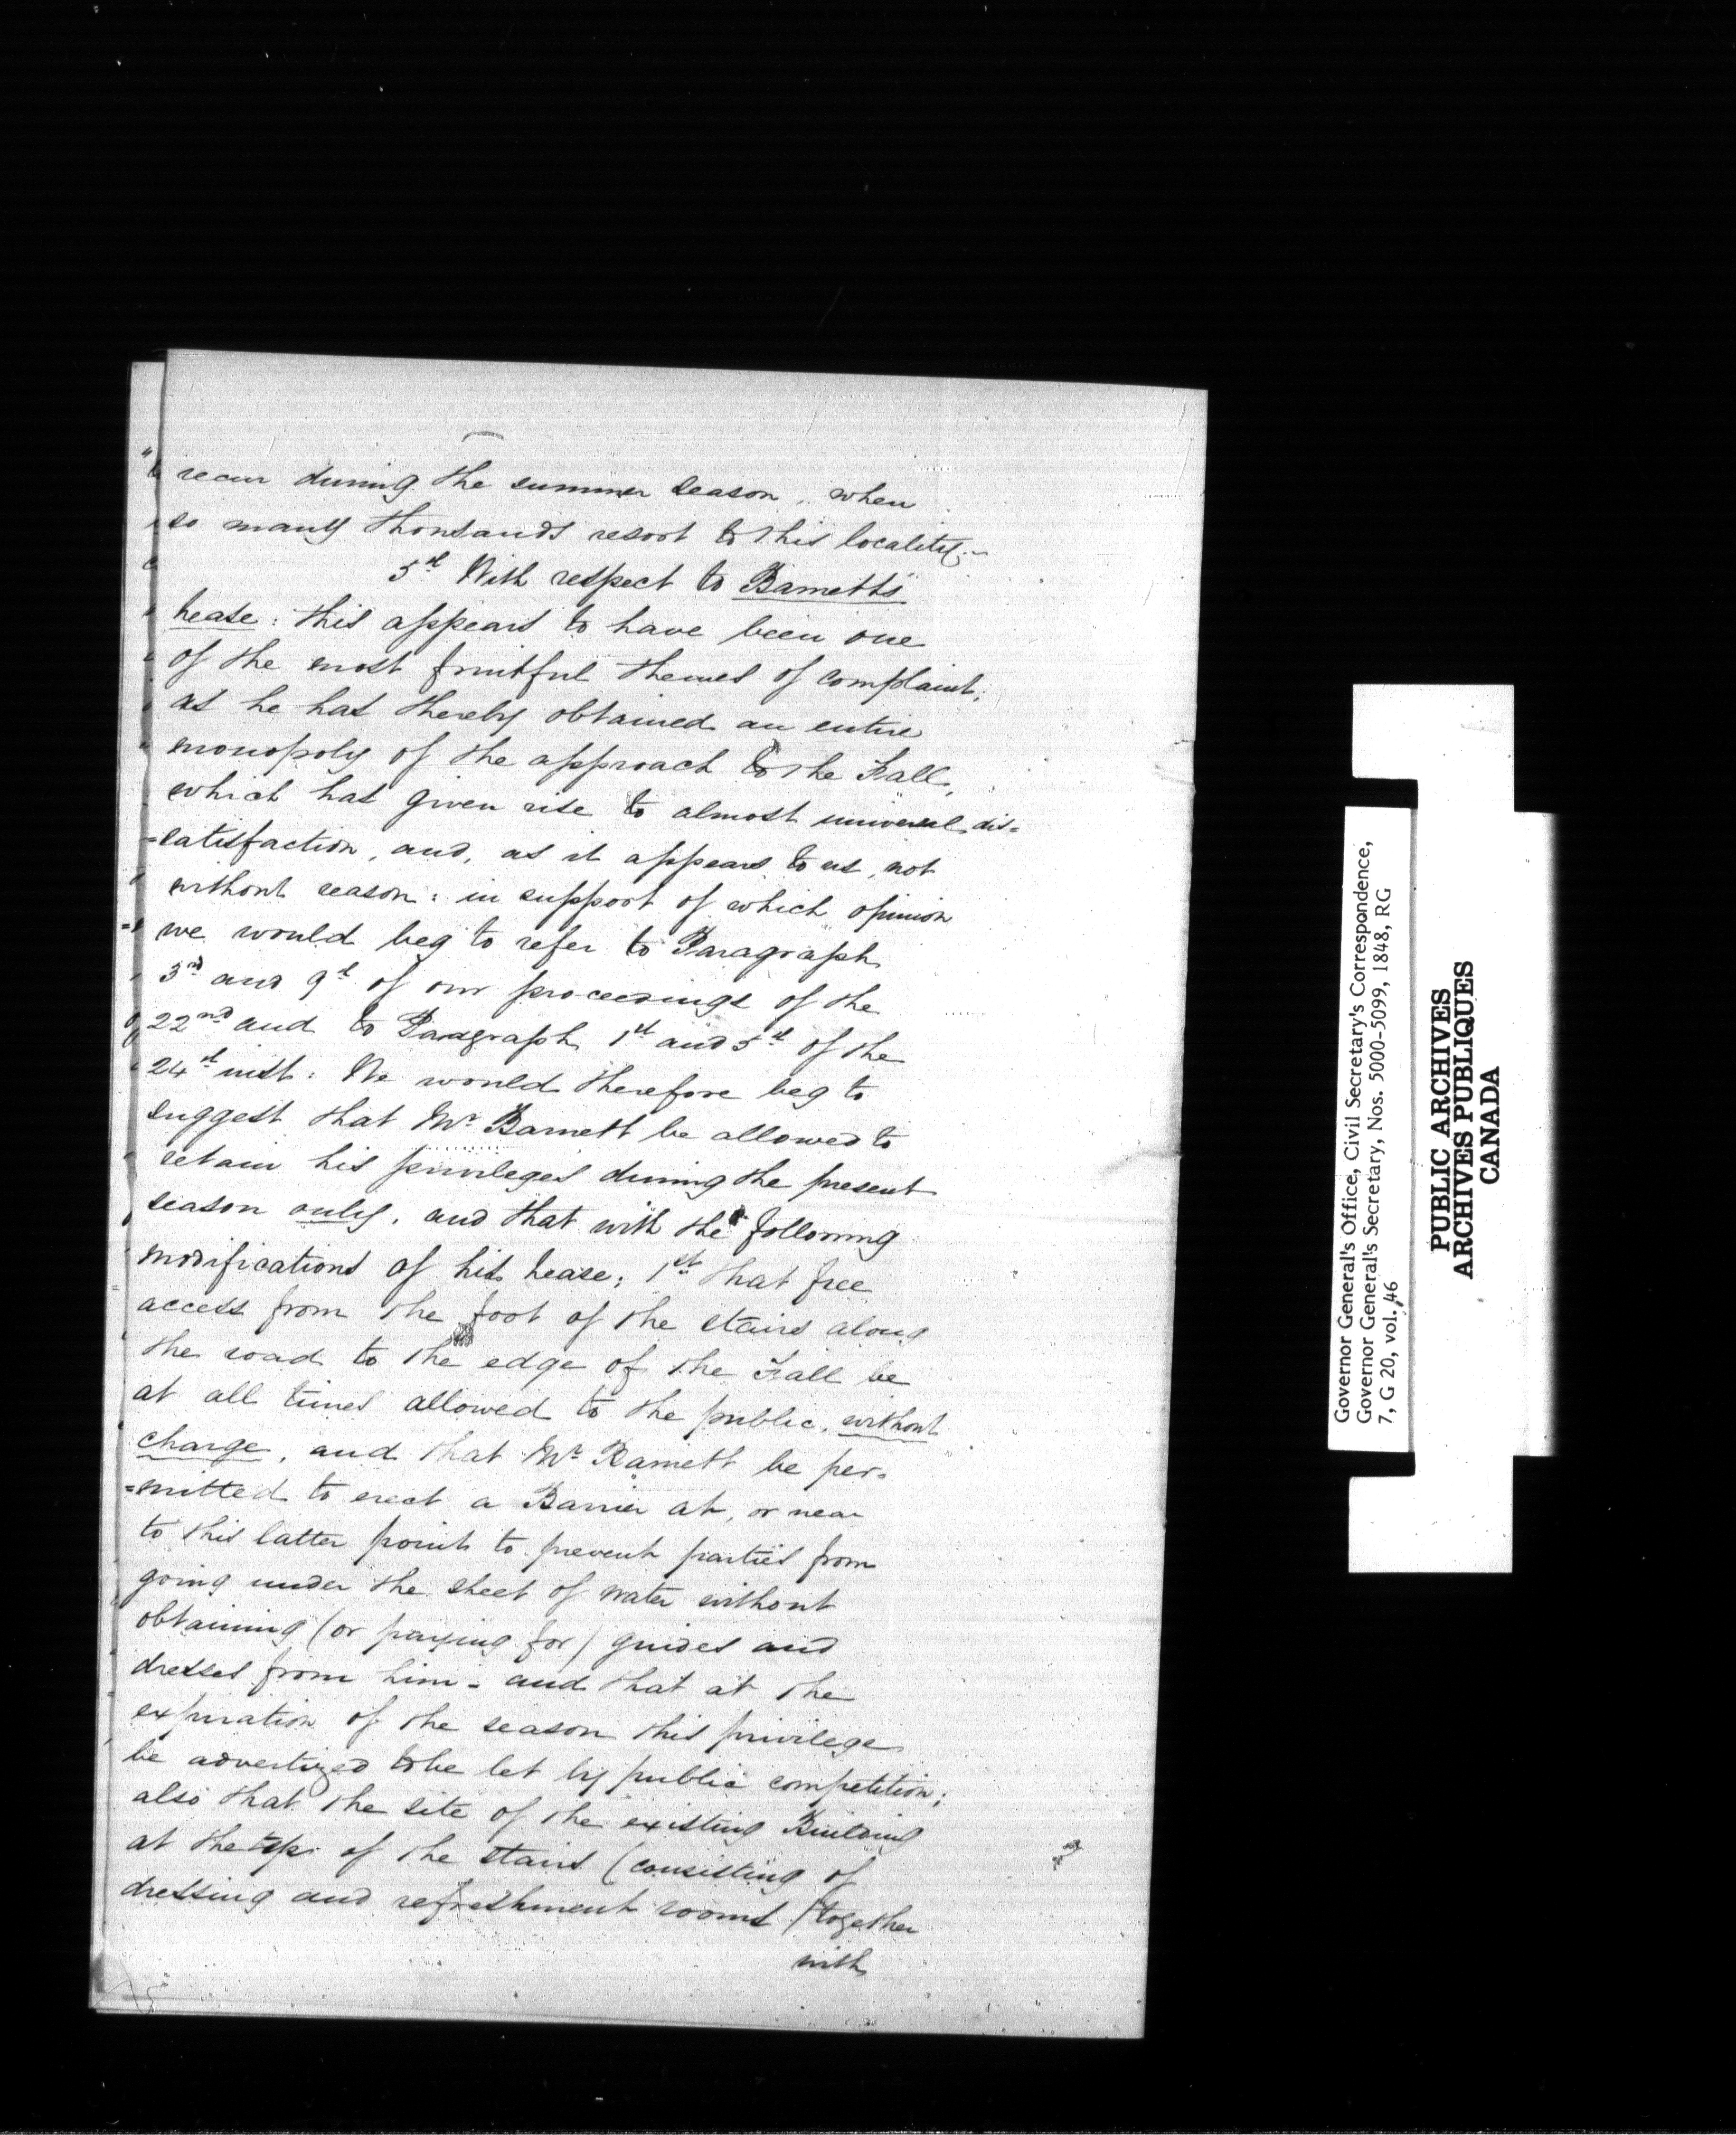 recur during the summer season, when
so many thousands resort to this locality.
5th With respect to Barnett's
Lease: this appears to have been one
of the most fruitful themes of complaint;
as he has thereby obtained an entire
monopoly of the approach to the Fall,
which has given rise to almost universal dis=
=satisfaction, and, as it appears to us, not
without reason: in support of which opinion
we would beg to refer to Paragraph
3rd and 9th of our proceedings of the
22nd and to Paragraph 1st and 5th of the
24th inst: We would therefore beg to
suggest that Mr Barnett be allowed to
retain his privileges during the present
season only, and that with the following
modifications of his Lease; 1st that free
access from the foot of the stairs along
the road to the edge of the Fall be
at all times allowed to the public, without
charge, and that Mr Barnett be per=
=mitted to erect a Barrier at, or near
to this latter point to prevent parties from
going under the sheet of water without
obtaining (or paying for) guides and
dresses from him - and that at the
expiration of the season this privilege
be advertized to be let by public competition;
also that the site of the existing Building
at the top of the stairs (consisting of
dressing and refreshment rooms) together
with
Governor General's Office, Civil Secretary's Correspondence,
Governor General's Secretary, Nos. 5000-5099, 1848, RG
7, G 20, vol. 46
PUBLIC ARCHIVES
ARCHIVES PUBLIQUES
CANADA